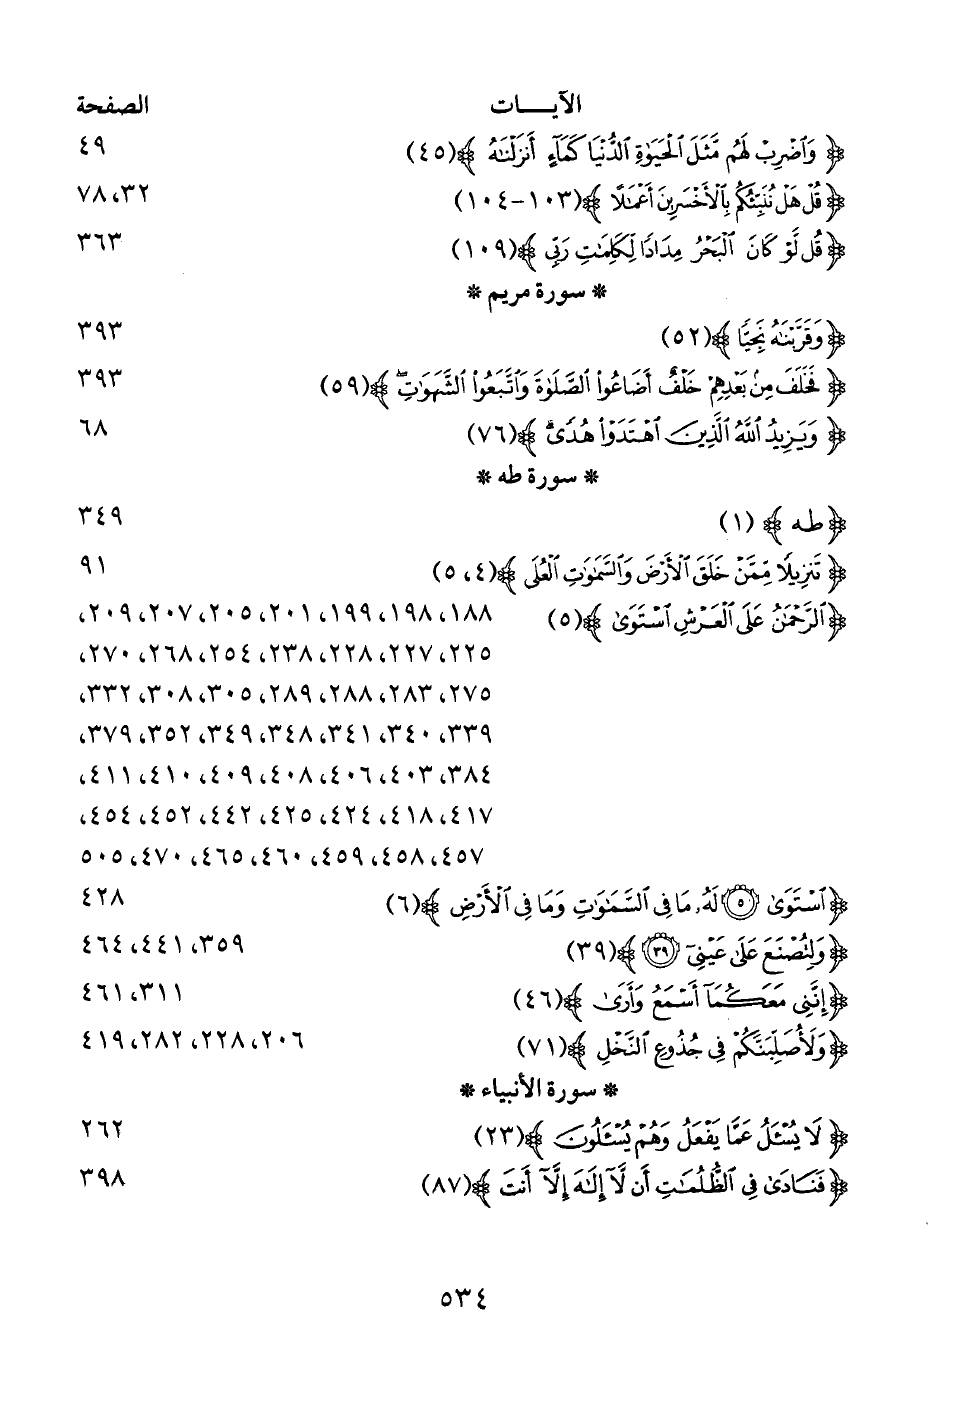 الآيـــات الصفحة
﴿ وَٱضْرِبْ لَهُم مَّثَلَ ٱلْحَيَوٰةِ ٱلدُّنْيَا كَمَآءٍ أَنزَلْنَـٰهُ ﴾(٤٥) ٤٩
﴿قُلْ هَلْ نُنَبِّئُكُم بِٱلْأَخْسَرِينَ أَعْمَـٰلًا ﴾(١٠٣-١٠٤) ٣٢، ٧٨
﴿قُل لَّوْ كَانَ ٱلْبَحْرُ مِدَادًا لِّكَلِمَـٰتِ رَبِّى ﴾(١٠٩) ٣٦٣
* سورة مريم *
﴿وَقَرَّبْنَـٰهُ نَجِيًّا ﴾(٥٢) ٣٩٣
﴿ فَخَلَفَ مِنۢ بَعْدِهِمْ خَلْفٌ أَضَاعُوا۟ ٱلصَّلَوٰةَ وَٱتَّبَعُوا۟ ٱلشَّهَوَٰتِ ۖ ﴾(٥٩) ٣٩٣
﴿ وَيَزِيدُ ٱللَّهُ ٱلَّذِينَ ٱهْتَدَوْا۟ هُدًى ۗ ﴾(٧٦) ٦٨
* سورة طه *
﴿ طه ﴾ (١) ٣٤٩
﴿ تَنزِيلًا مِّمَّنْ خَلَقَ ٱلْأَرْضَ وَٱلسَّمَـٰوَٰتِ ٱلْعُلَى ﴾(٤، ٥) ٩١
﴿ٱلرَّحْمَـٰنُ عَلَى ٱلْعَرْشِ ٱسْتَوَىٰ ﴾(٥) ١٨٨، ١٩٨، ١٩٩، ٢٠١، ٢٠٥، ٢٠٧، ٢٠٩،
٢٢٥، ٢٢٧، ٢٢٨، ٢٣٨، ٢٥٤، ٢٦٨، ٢٧٠،
٢٧٥، ٢٨٣، ٢٨٨، ٢٨٩، ٣٠٥، ٣٠٨، ٣٣٢،
٣٣٩، ٣٤٠، ٣٤١، ٣٤٨، ٣٤٩، ٣٥٢، ٣٧٩،
٣٨٤، ٤٠٣، ٤٠٦، ٤٠٨، ٤٠٩، ٤١٠، ٤١١،
٤١٧، ٤١٨، ٤٢٤، ٤٢٥، ٤٤٢، ٤٥٢، ٤٥٤،
٤٥٧، ٤٥٨، ٤٥٩، ٤٦٠، ٤٦٥، ٤٧٠، ٥٠٥
﴿ٱسْتَوَىٰ ٥ لَهُۥ مَا فِى ٱلسَّمَـٰوَٰتِ وَمَا فِى ٱلْأَرْضِ ﴾(٦) ٤٢٨
﴿وَلِتُصْنَعَ عَلَىٰ عَيْنِىٓ ٣٩ ﴾(٣٩) ٣٥٩، ٤٤١، ٤٦٤
﴿إِنَّنِى مَعَكُمَآ أَسْمَعُ وَأَرَىٰ ﴾(٤٦) ٣١١، ٤٦١
﴿وَلَأُصَلِّبَنَّكُمْ فِى جُذُوعِ ٱلنَّخْلِ ﴾(٧١) ٢٠٦، ٢٢٨، ٢٨٢، ٤١٩
* سورة الأنبياء *
﴿ لَا يُسْـَٔلُ عَمَّا يَفْعَلُ وَهُمْ يُسْـَٔلُونَ ﴾(٢٣) ٢٦٢
﴿فَنَادَىٰ فِى ٱلظُّلُمَـٰتِ أَن لَّآ إِلَـٰهَ إِلَّآ أَنتَ ﴾(٨٧) ٣٩٨
٥٣٤